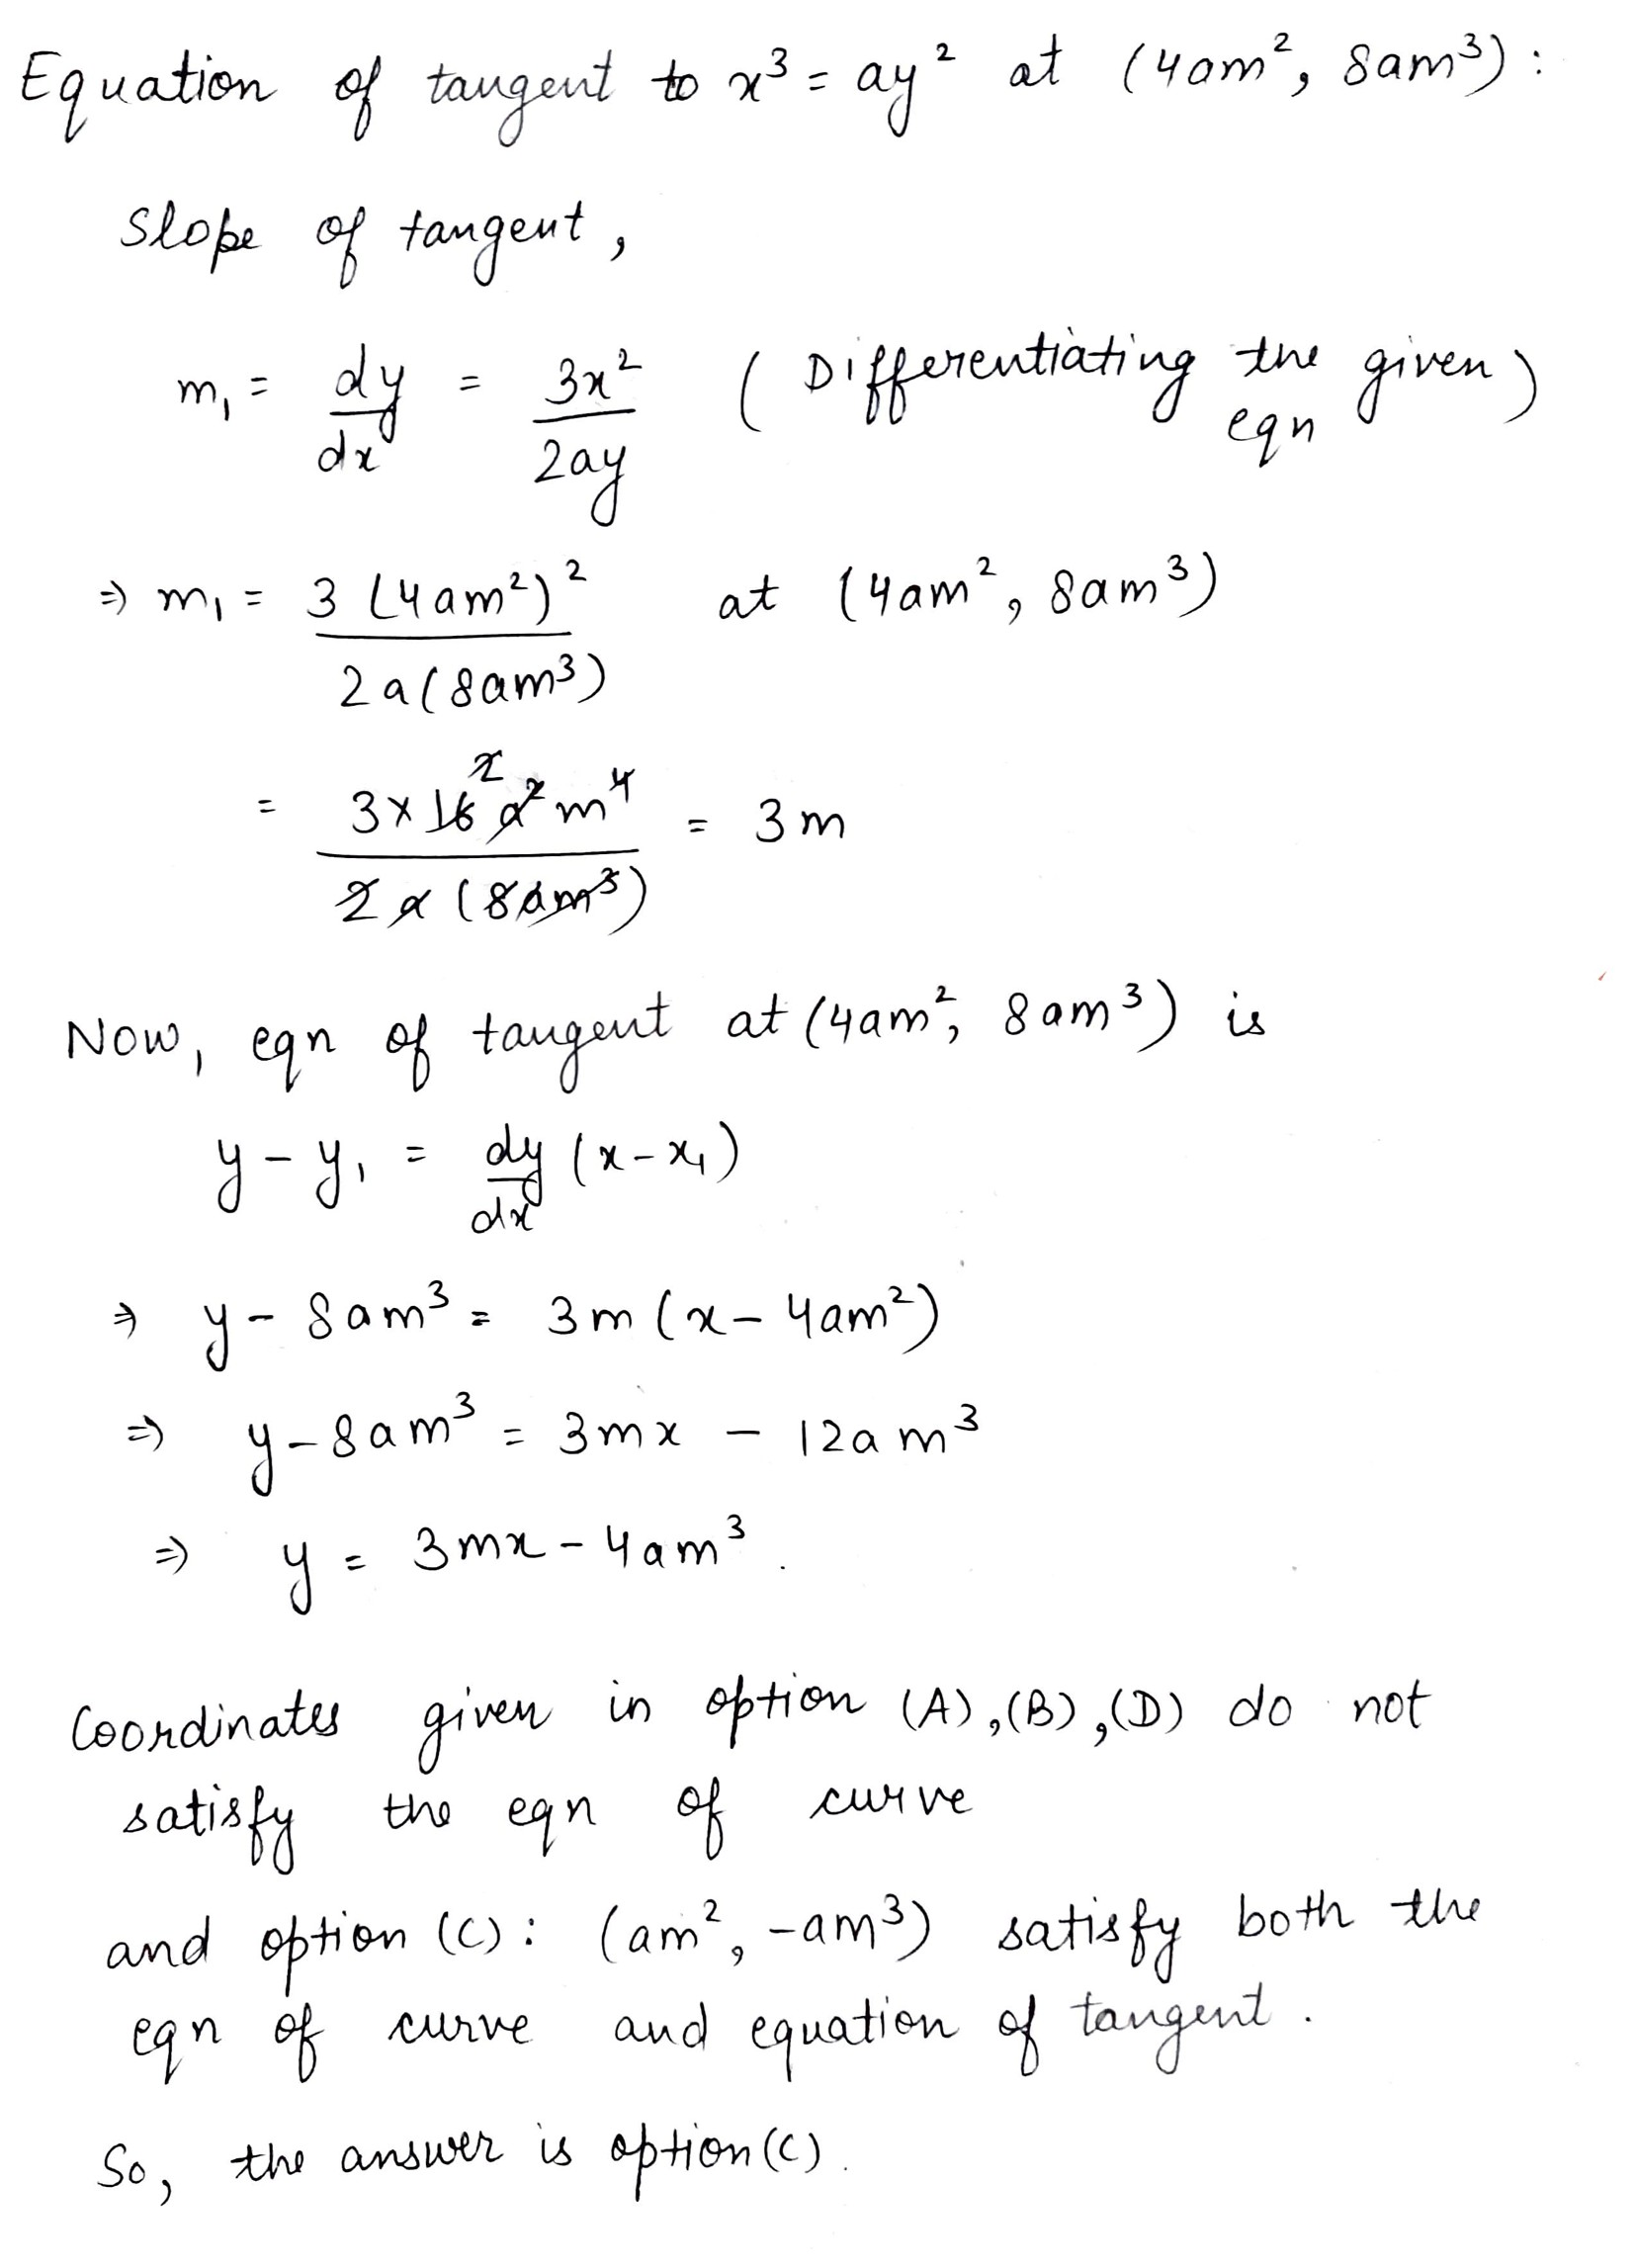 Equation of tangent to x³ = ay² at (4am², 8am³):
Slope of tangent,
m₁ = dy/dx = 3x²/2ay (Differentiating the given eqn)
⇒ m₁ = 3(4am²)²/2a(8am³) at (4am², 8am³)
= 3×16a²m⁴/2a(8am³) = 3m
Now, eqn of tangent at (4am², 8am³) is
y - y₁ = dy/dx (x - x₁)
⇒ y - 8am³ = 3m(x - 4am²)
⇒ y - 8am³ = 3mx - 12am³
⇒ y = 3mx - 4am³.
Coordinates given in option (A),(B),(D) do not
satisfy the eqn of curve
and option (C): (am², -am³) satisfy both the
eqn of curve and equation of tangent.
So, the answer is option(C).